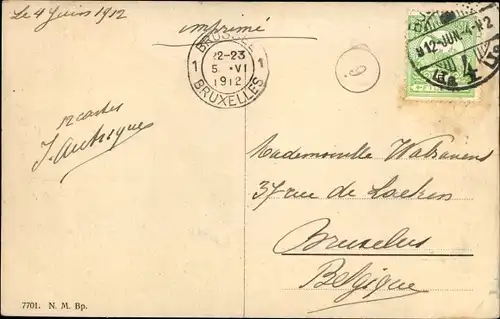 Le 4 Juin 1912
imprimé
BRUSSEL
1 22-23 1
5 ·VI
1912
BRUXELLES
6
912 JUN.-4
4
12 cartes
J. Autrique
Mademoiselle Walravens
37 rue de Laeken
Bruxelles
Belgique
7701. N. M. Bp.